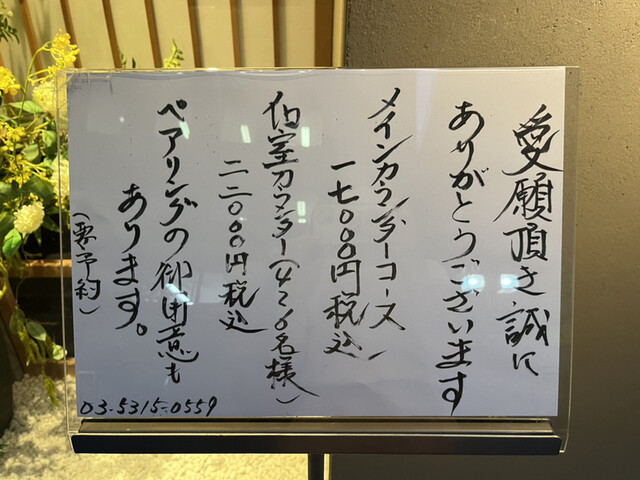 愛願頂き誠に
ありがとうございます
メインカウンターコース
一七〇〇〇円税込
個室カウンター(4~6名様)
二二〇〇〇円税込
ペアリングの御用意も
あります。
(要予約)
03-5315-0559